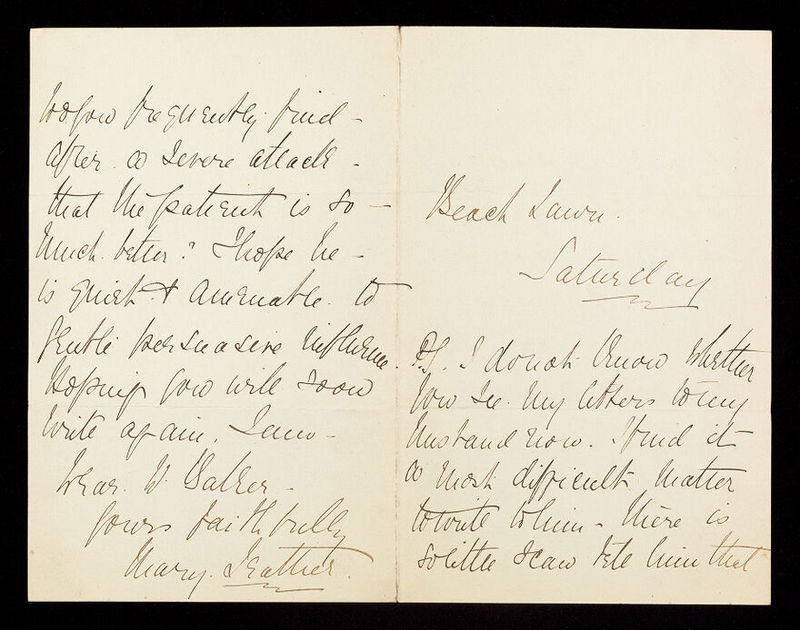 Do you frequently find -
after a severe attack -
that the patient is so -
much better? I hope he -
is quiet & amenable to
gentle persuasive influence.
Hoping you will soon
write again. I am -
Dear Dr
Yours faithfully
Mary Leather.
Beach Lawn.
Saturday
P.S. I do not know whether
you see my letters to my
husband now. I find it
a most difficult matter
to write to him - there is
so little I can tell him that